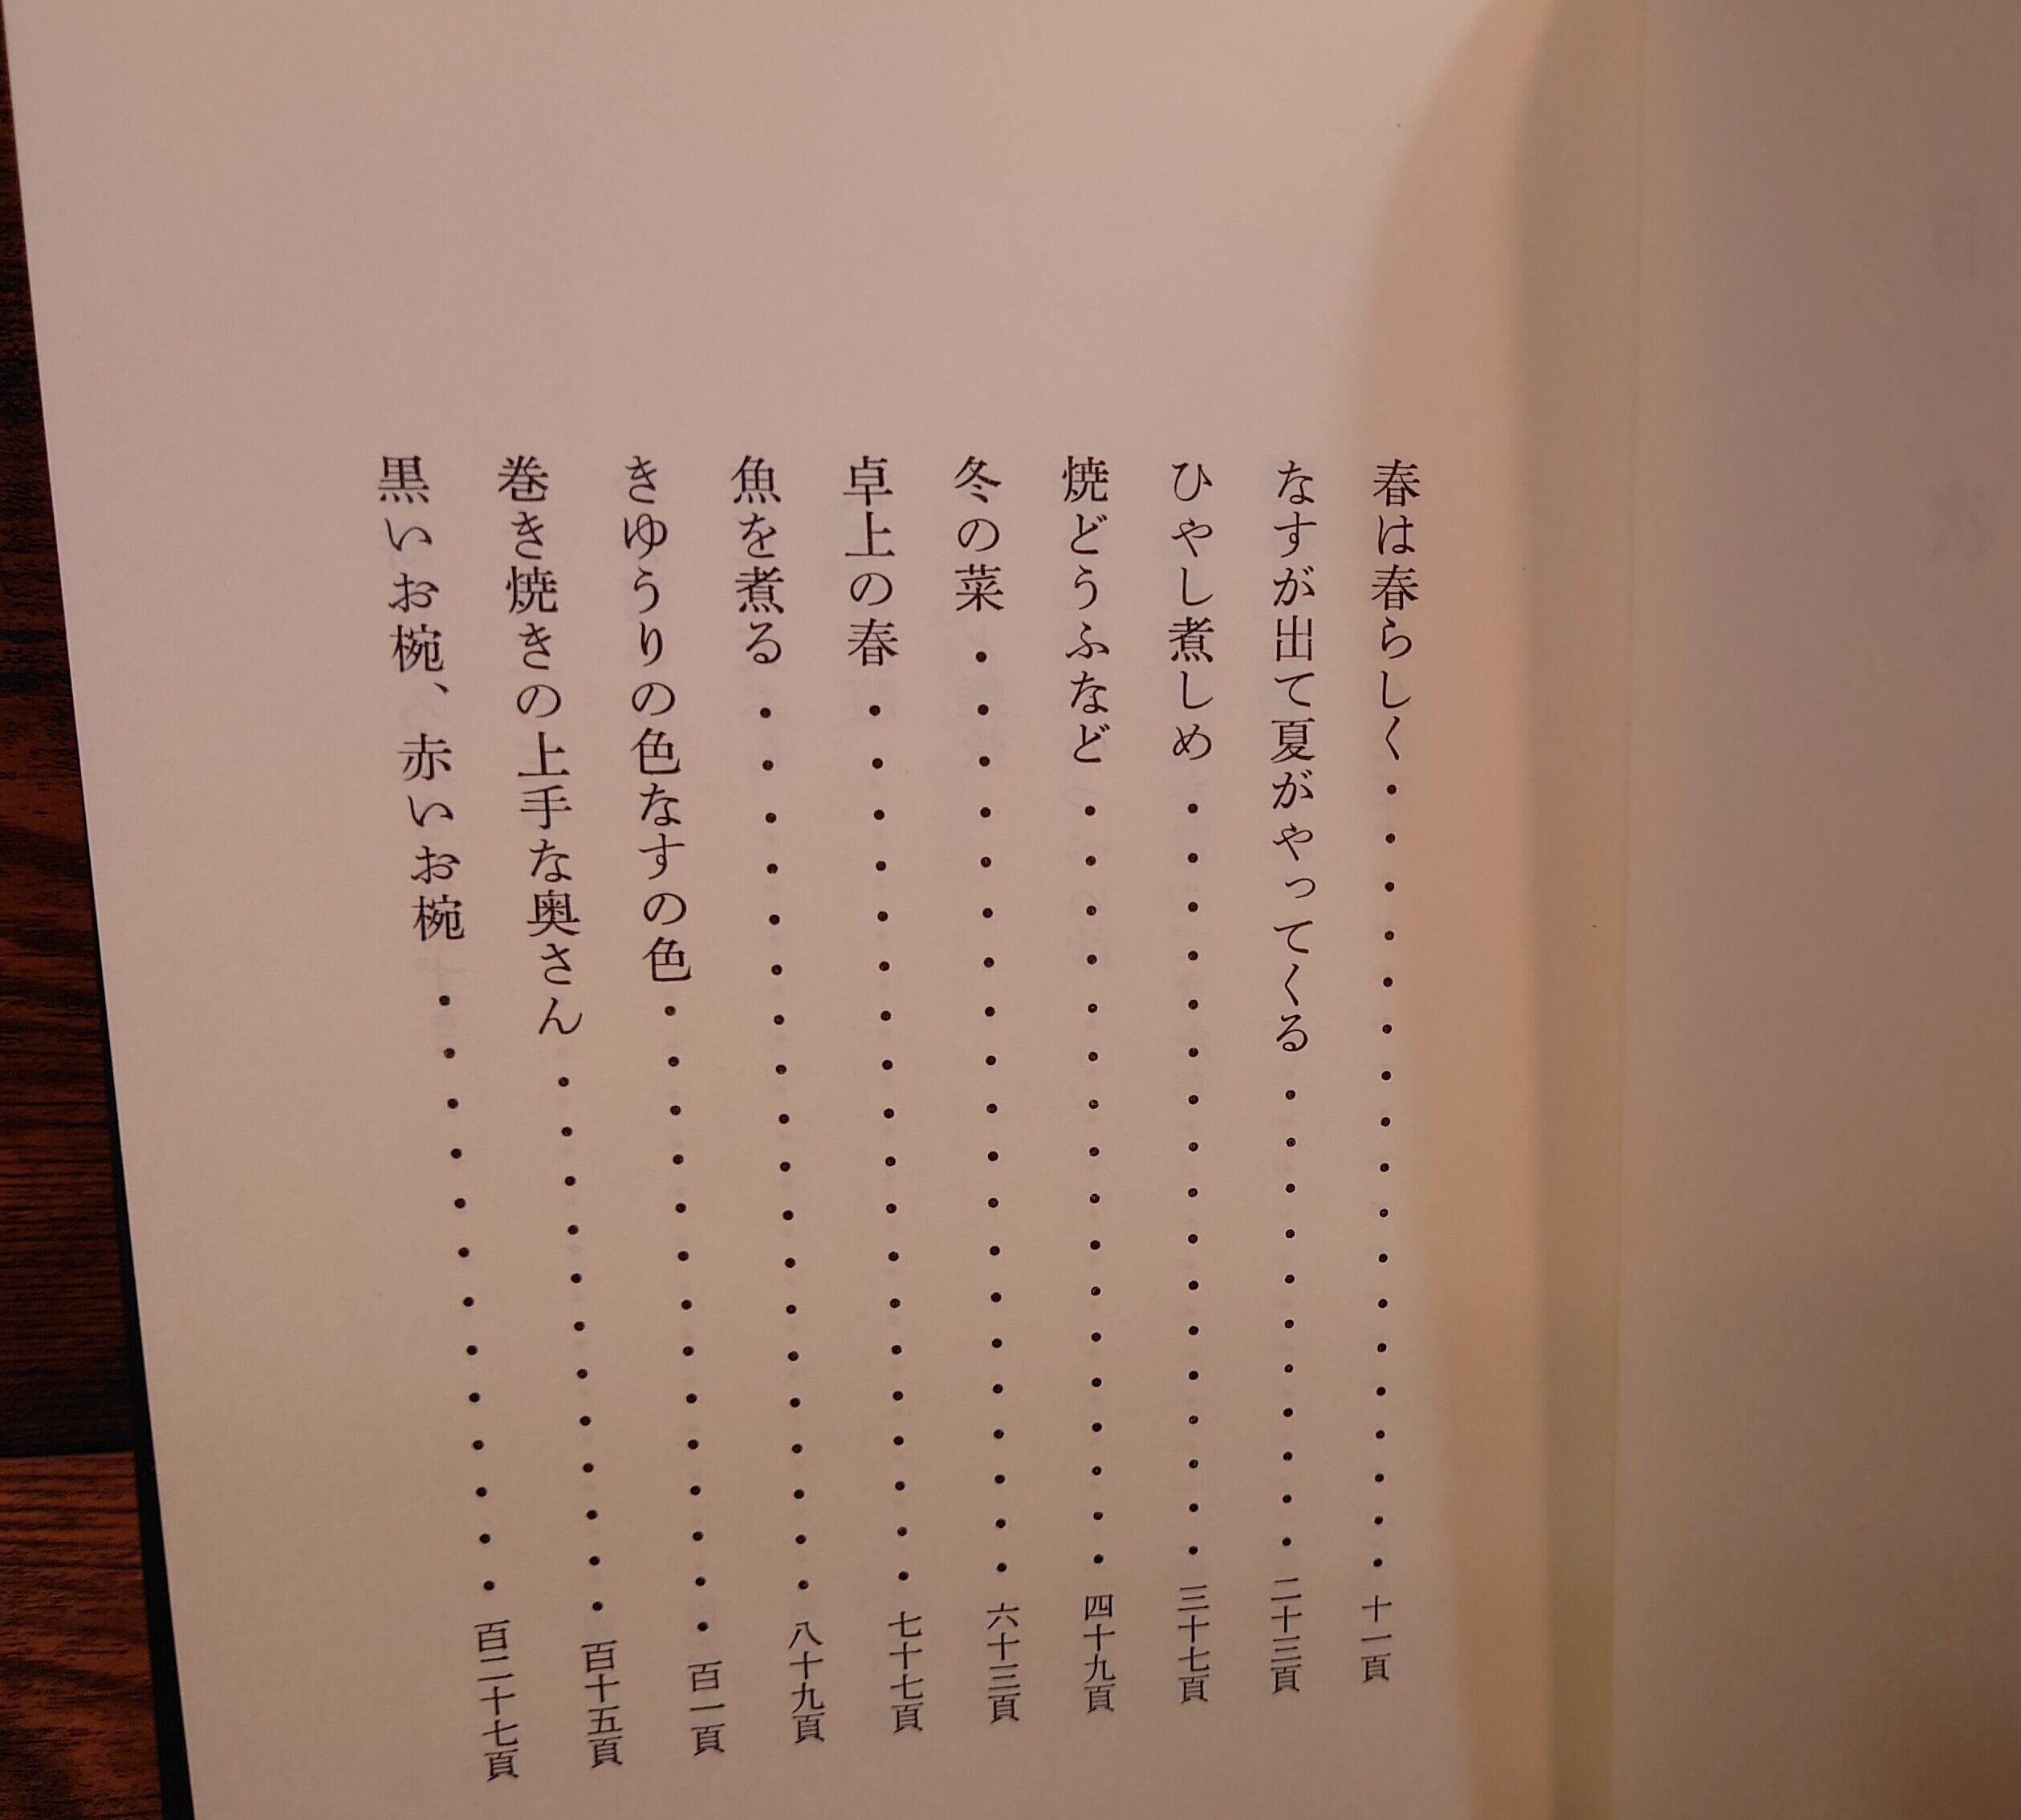 春は春らしく・・・・・・・・・・・・・・・・・十一頁
なすが出て夏がやってくる・・・・・・・・・・・二十三頁
ひやし煮しめ・・・・・・・・・・・・・・・・・三十七頁
焼どうふなど・・・・・・・・・・・・・・・・・四十九頁
冬の菜・・・・・・・・・・・・・・・・・・・・六十三頁
卓上の春・・・・・・・・・・・・・・・・・・・七十七頁
魚を煮る・・・・・・・・・・・・・・・・・・・八十九頁
きゆうりの色なすの色・・・・・・・・・・・・・・百一頁
巻き焼きの上手な奥さん・・・・・・・・・・・・百十五頁
黒いお椀、赤いお椀・・・・・・・・・・・・・百二十七頁